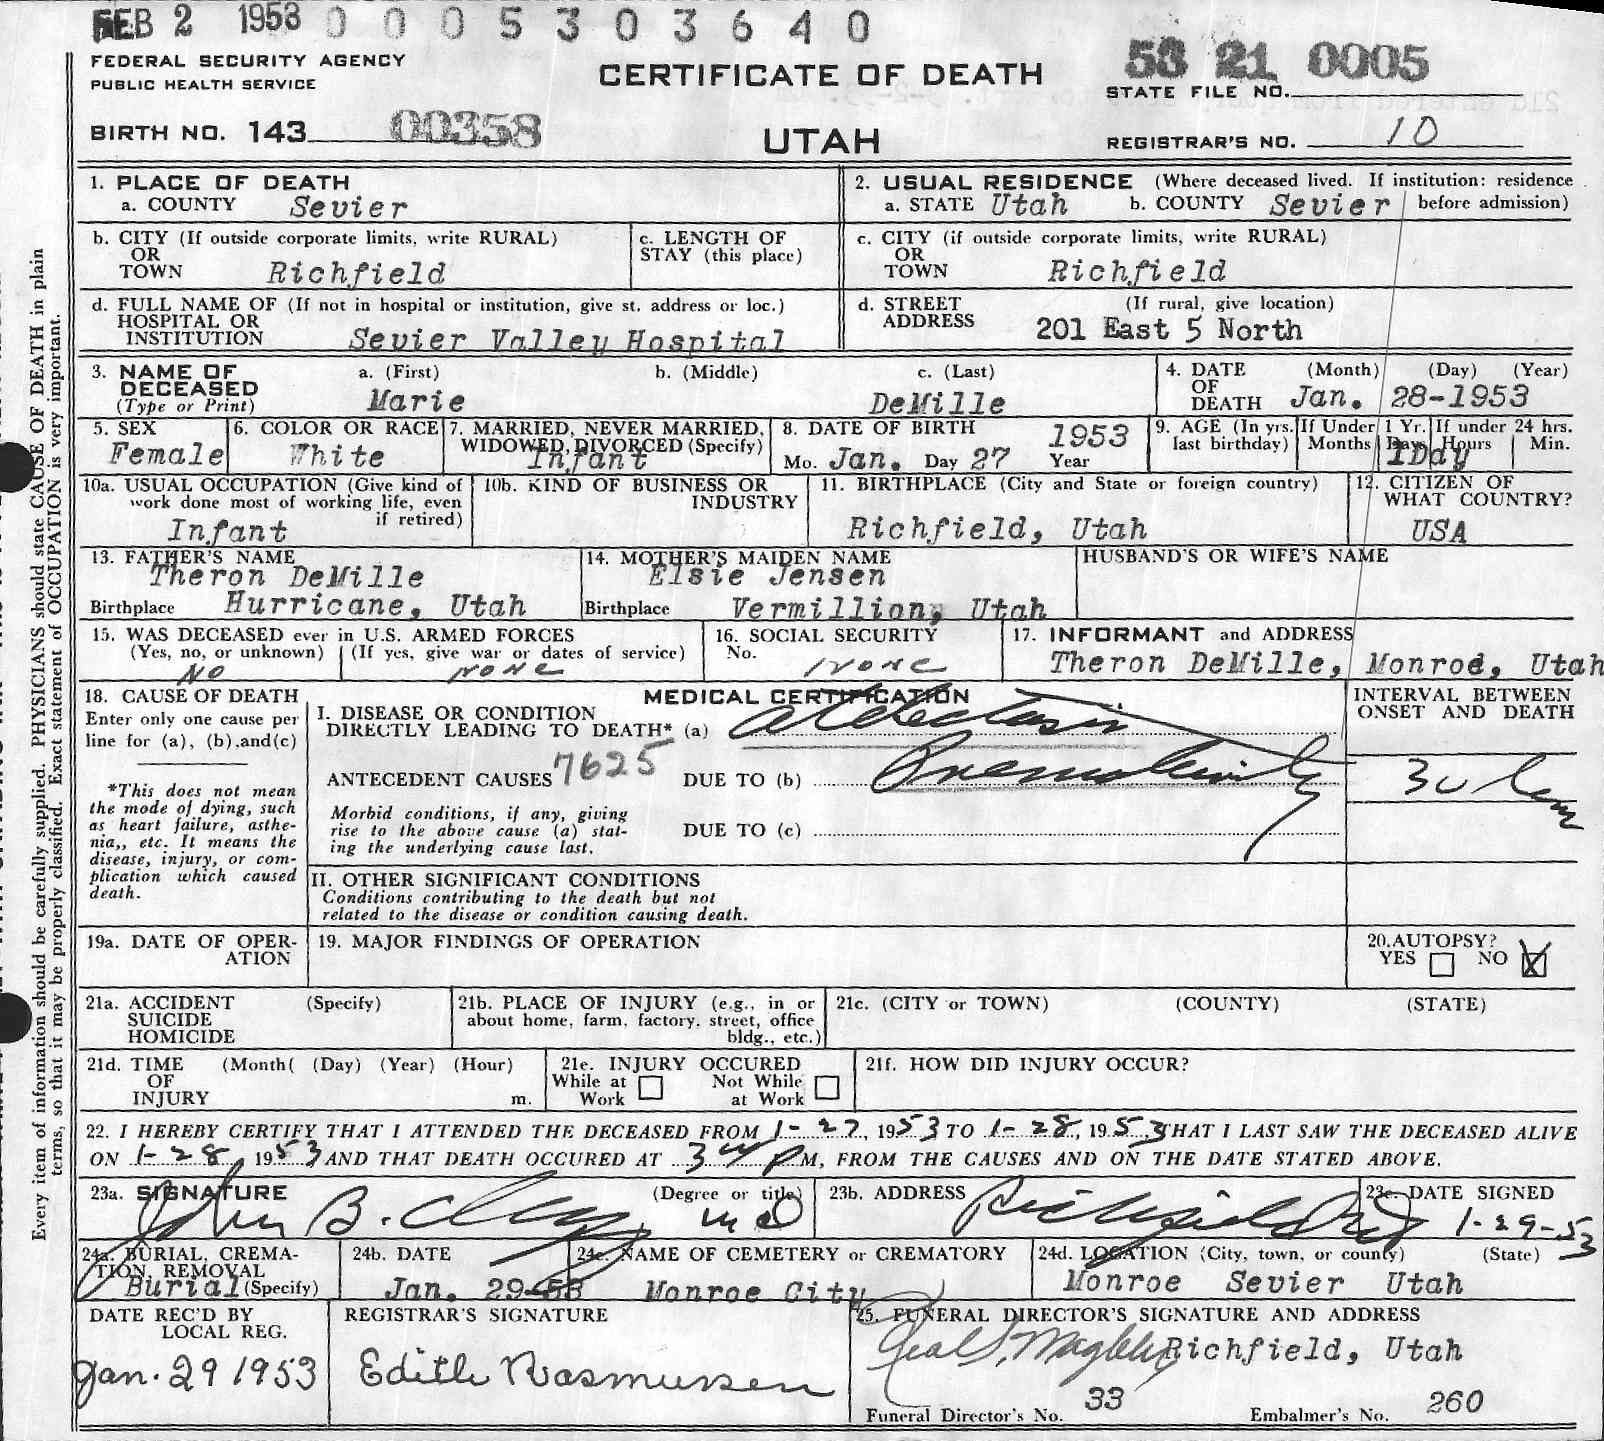 FEB 2 1953 0 0 0 5 3 0 3 6 4 0
FEDERAL SECURITY AGENCY
PUBLIC HEALTH SERVICE
CERTIFICATE OF DEATH
53 21 0005
STATE FILE NO.
BIRTH NO. 143 00358
UTAH
REGISTRAR'S NO. 10
Every item of information should be carefully supplied. PHYSICIANS should state CAUSE OF DEATH in plain
terms, so that it may be properly classified. Exact statement of OCCUPATION is very important.
1. PLACE OF DEATH
a. COUNTY Sevier
2. USUAL RESIDENCE (Where deceased lived. If institution: residence
a. STATE Utah b. COUNTY Sevier before admission)
b. CITY (If outside corporate limits, write RURAL)
OR
TOWN Richfield
c. LENGTH OF
STAY (this place)
c. CITY (if outside corporate limits, write RURAL)
OR
TOWN Richfield
d. FULL NAME OF (If not in hospital or institution, give st. address or loc.)
HOSPITAL OR
INSTITUTION Sevier Valley Hospital
d. STREET (If rural, give location)
ADDRESS 201 East 5 North
3. NAME OF a. (First) b. (Middle) c. (Last)
DECEASED
(Type or Print) Marie DeMille
4. DATE (Month) (Day) (Year)
OF
DEATH Jan. 28-1953
5. SEX
Female
6. COLOR OR RACE
White
7. MARRIED, NEVER MARRIED,
WIDOWED, DIVORCED (Specify)
Infant
8. DATE OF BIRTH 1953
Mo. Jan. Day 27 Year
9. AGE (In yrs.
last birthday)
If Under 1 Yr.
Months Days
If under 24 hrs.
Hours Min.
1Day
10a. USUAL OCCUPATION (Give kind of
work done most of working life, even
if retired)
Infant
10b. KIND OF BUSINESS OR
INDUSTRY
11. BIRTHPLACE (City and State or foreign country)
Richfield, Utah
12. CITIZEN OF
WHAT COUNTRY?
USA
13. FATHER'S NAME
Theron DeMille
Birthplace Hurricane, Utah
14. MOTHER'S MAIDEN NAME
Elsie Jensen
Birthplace Vermillion, Utah
HUSBAND'S OR WIFE'S NAME
15. WAS DECEASED ever in U.S. ARMED FORCES
(Yes, no, or unknown) (If yes, give war or dates of service)
No none
16. SOCIAL SECURITY
No.
none
17. INFORMANT and ADDRESS
Theron DeMille, Monroe, Utah
18. CAUSE OF DEATH
Enter only one cause per
line for (a), (b), and (c)
*This does not mean
the mode of dying, such
as heart failure, asthe-
nia,, etc. It means the
disease, injury, or com-
plication which caused
death.
MEDICAL CERTIFICATION
I. DISEASE OR CONDITION
DIRECTLY LEADING TO DEATH* (a) atelectasis
ANTECEDENT CAUSES 7625 DUE TO (b) Prematurity
Morbid conditions, if any, giving
rise to the above cause (a) stat-
ing the underlying cause last.
DUE TO (c)
INTERVAL BETWEEN
ONSET AND DEATH
II. OTHER SIGNIFICANT CONDITIONS
Conditions contributing to the death but not
related to the disease or condition causing death.
19a. DATE OF OPER-
ATION
19. MAJOR FINDINGS OF OPERATION
20. AUTOPSY?
YES NO X
21a. ACCIDENT (Specify)
SUICIDE
HOMICIDE
21b. PLACE OF INJURY (e.g., in or
about home, farm, factory, street, office
bldg., etc.)
21c. (CITY or TOWN) (COUNTY) (STATE)
21d. TIME (Month( (Day) (Year) (Hour)
OF
INJURY m.
21e. INJURY OCCURED
While at Not While
Work at Work
21f. HOW DID INJURY OCCUR?
22. I HEREBY CERTIFY THAT I ATTENDED THE DECEASED FROM 1-27, 1953 TO 1-28, 1953 THAT I LAST SAW THE DECEASED ALIVE
ON 1-28, 1953 AND THAT DEATH OCCURED AT 3 PM, FROM THE CAUSES AND ON THE DATE STATED ABOVE.
23a. SIGNATURE (Degree or title)
John B. MD
23b. ADDRESS
Richfield
23c. DATE SIGNED
1-29-53
24a. BURIAL, CREMA-
TION, REMOVAL
Burial (Specify)
24b. DATE
Jan. 29-53
24c. NAME OF CEMETERY or CREMATORY
Monroe City
24d. LOCATION (City, town, or county) (State)
Monroe Sevier Utah
DATE REC'D BY
LOCAL REG.
Jan. 29 1953
REGISTRAR'S SIGNATURE
Edith Rasmussen
25. FUNERAL DIRECTOR'S SIGNATURE AND ADDRESS
Richfield, Utah
Funeral Director's No. 33 Embalmer's No. 260